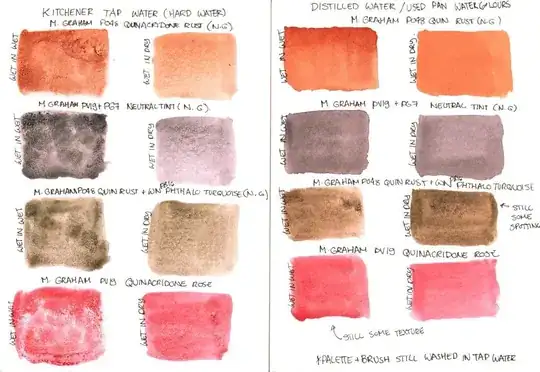 KITCHENER TAP WATER (HARD WATER)
M. GRAHAM PO48 QUINACRIDONE RUST (N.G)
WET IN WET
WET IN DRY
M. GRAHAM PV19 + PG7 NEUTRAL TINT (N.G)
WET IN WET
WET IN DRY
M. GRAHAM PO48 QUIN RUST + WN PB16 PHTHALO TURQUOISE (N.G)
WET IN WET
WET IN DRY
M. GRAHAM PV19 QUINACRIDONE ROSE
WET IN WET
WET IN DRY
DISTILLED WATER / USED PAN WATERCOLOURS
M. GRAHAM PO48 QUIN RUST (N.G.)
WET IN WET
WET IN DRY
M. GRAHAM PV19 + PG7 NEUTRAL TINT (N.G)
WET IN WET
WET IN DRY
M. GRAHAM PO48 QUIN RUST + WN PB16 PHTHALO TURQUOISE
WET IN WET
WET IN DRY
STILL
SOME
SPOTTING
M. GRAHAM PV19 QUINACRIDONE ROSE
WET IN WET
WET IN DRY
STILL SOME TEXTURE
*PALETTE + BRUSH STILL WASHED IN TAP WATER